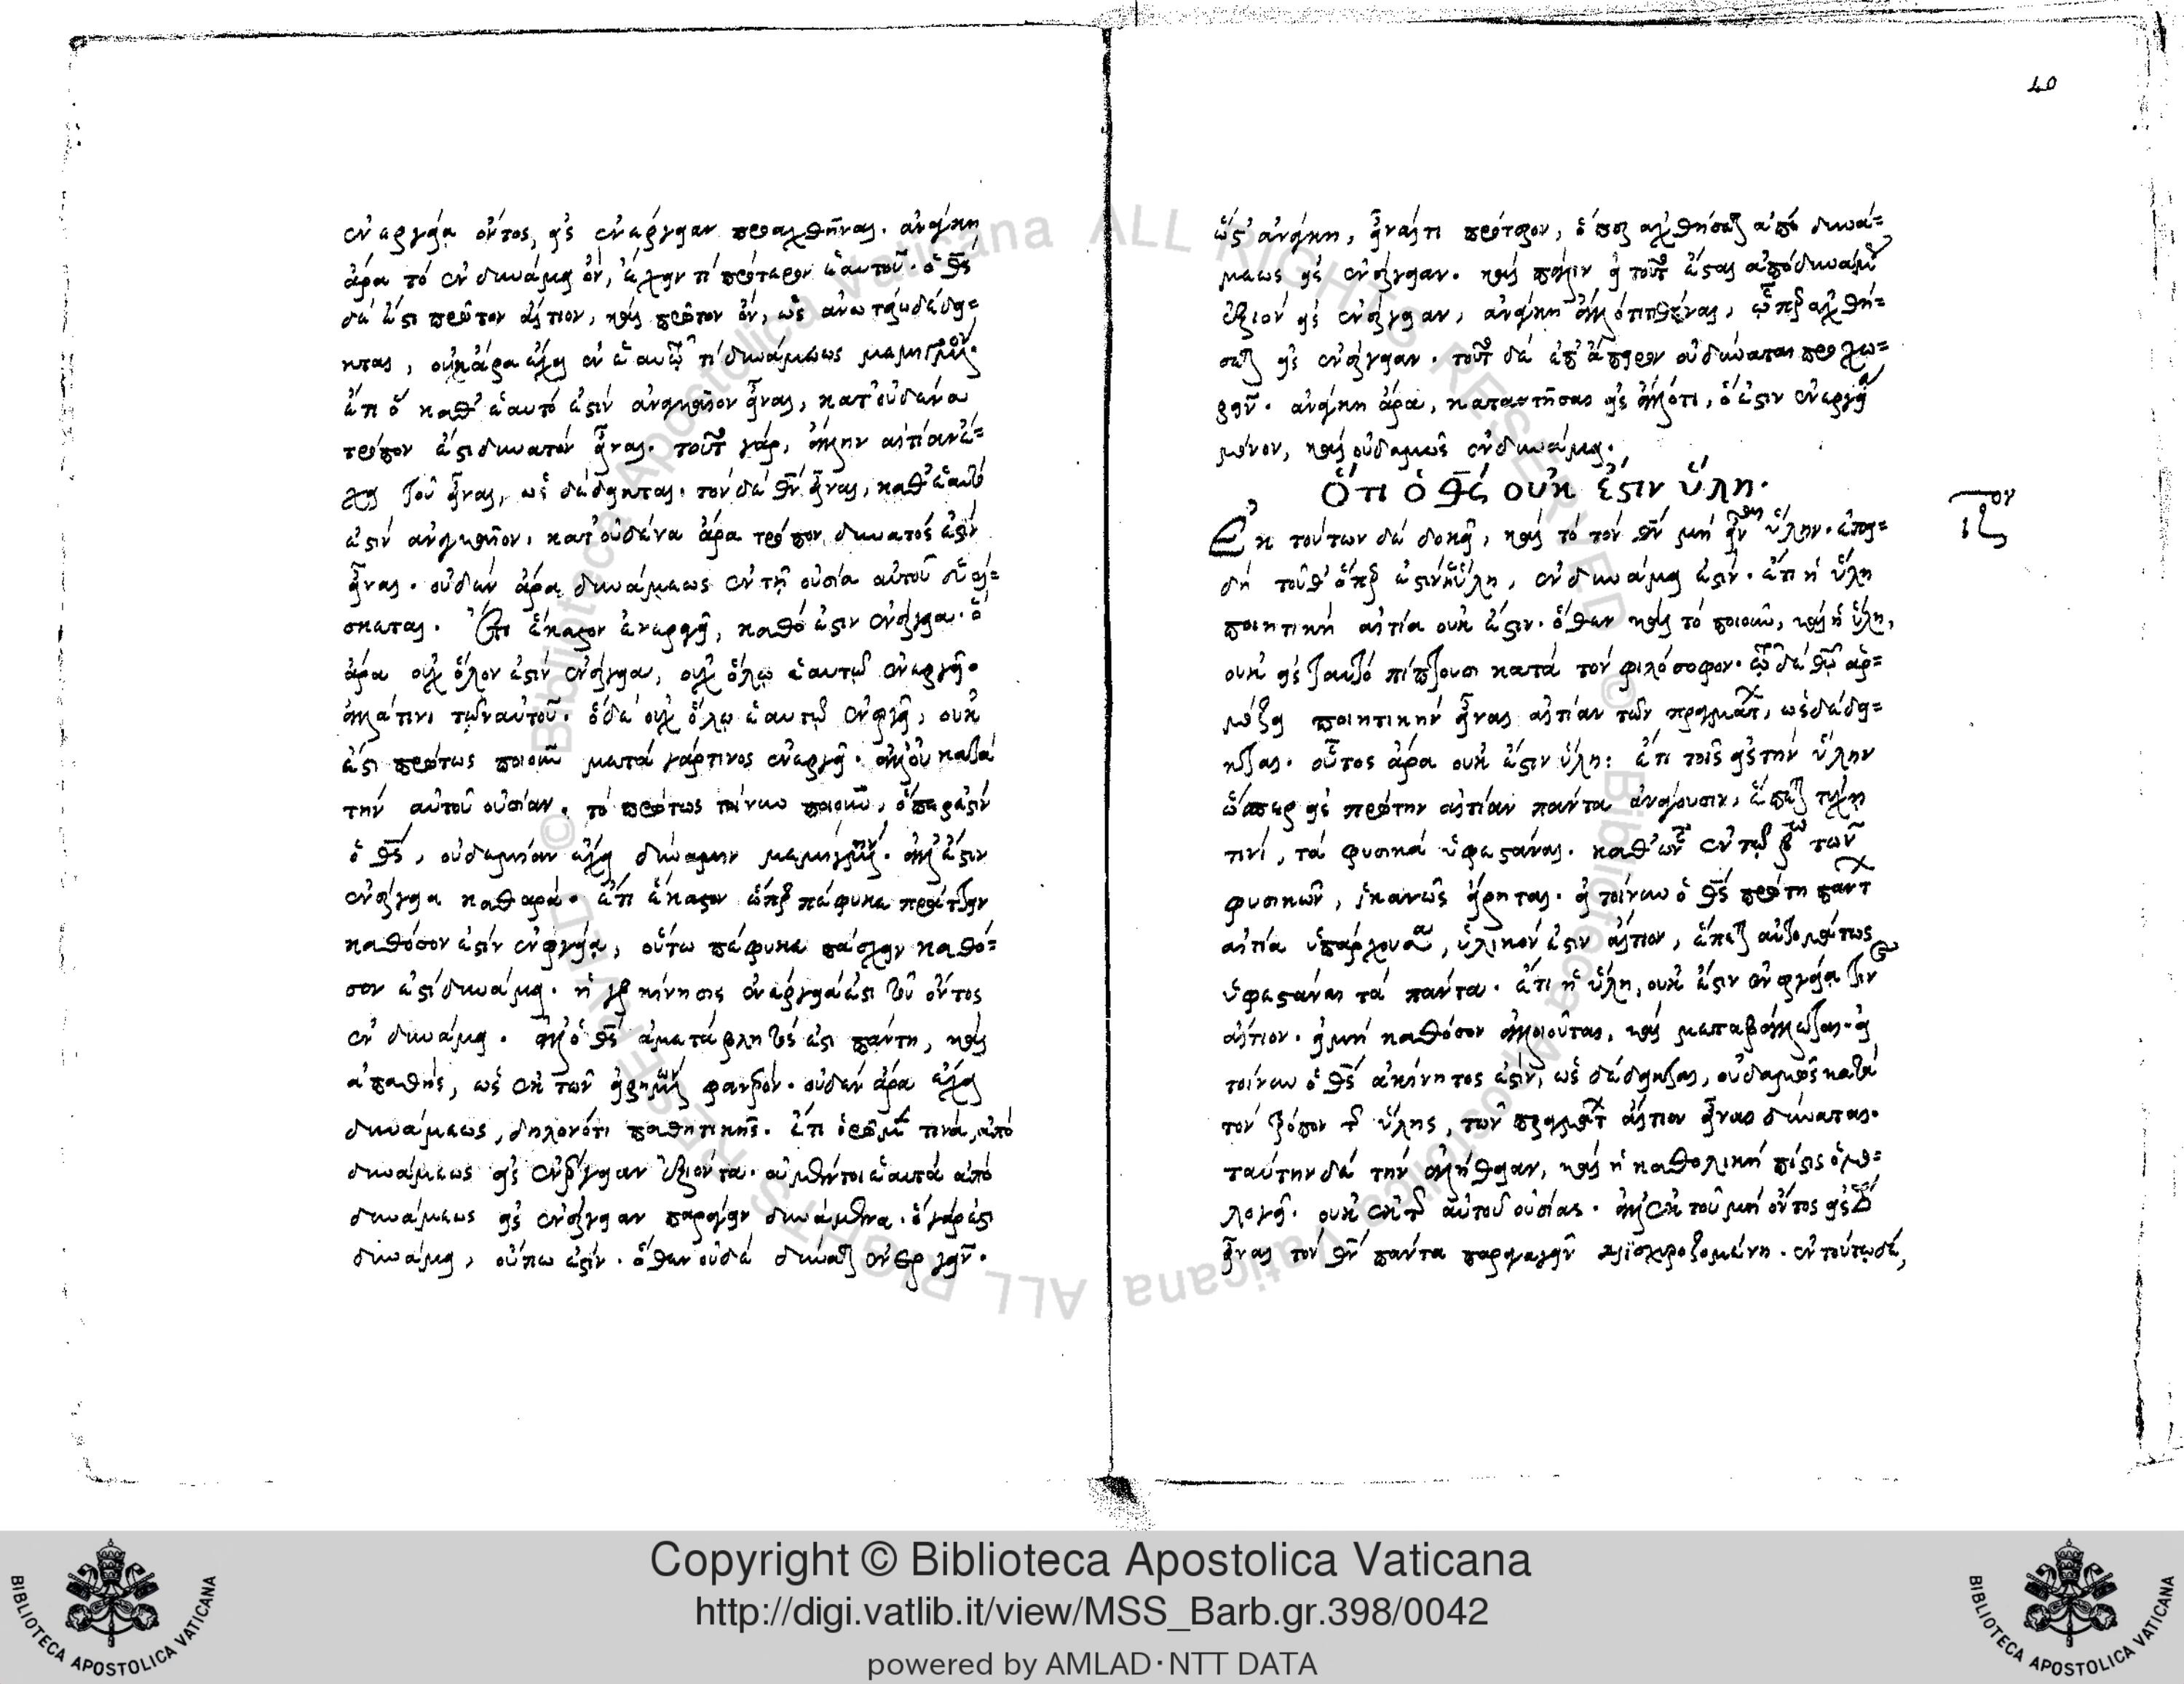 ἐνεργεία ὄντος, εἰς ἐνέργειαν προαχθῆναι. ἀνάγκη
ἄρα τὸ ἐν δυνάμει ὂν, ἔχειν τὶ πρότερον ἑαυτοῦ. ὁ θς
δέ ἐστι πρῶτον αἴτιον, καὶ πρῶτον ὂν, ὡς ἄνωθεν δέδει=
κται, οὐκ ἄρα ἔχει ἐν ἑαυτῷ τὶ δυνάμεως μεμιγμένον.
ἔτι ὃ καθ' ἑαυτό ἐστιν ἀναγκαῖον εἶναι, κατ' οὐδένα
τρόπον ἐστὶ δυνατὸν εἶναι. τοῦτο γὰρ, ἄλλην αἰτίαν ἔ=
χει τοῦ εἶναι, ὡς δέδεικται. τὸν δὲ θν εἶναι, καθ' ἑαυτό
ἐστιν ἀναγκαῖον. κατ' οὐδένα ἄρα τρόπον δυνατός ἐστιν
εἶναι. οὐδὲν ἄρα δυνάμεως ἐν τῇ οὐσία αὐτοῦ εὑρί=
σκεται. Ἔτι ἕκαστον ἐνεργεῖ, καθό ἐστιν ἐνέργεια. ὃ
ἄρα οὐχ ὅλον ἐστὶν ἐνέργεια, οὐχ ὅλω ἑαυτῷ ἐνεργεῖ.
ἀλλά τινι τῶν αὐτοῦ. ὃ δὲ οὐχ ὅλω ἑαυτῷ ἐνεργεῖ, οὐκ
ἔστι πρώτως ποιοῦν μετὰ γάρ τινος ἐνεργεῖ. ἀλλ' οὐ κατὰ
τὴν αὐτοῦ οὐσίαν. τὸ πρώτως τοίνυν ποιοῦν, ὅπερ ἐστὶν
ὁ θς, οὐδεμίαν ἔχει δύναμιν μεμιγμένην. ἀλλ' ἔστιν
ἐνέργεια καθαρά. ἔτι ἕκαστον ὥσπερ πέφυκε πράττειν
καθόσον ἐστὶν ἐνεργεία, οὕτω πέφυκε πάσχειν καθό=
σον ἐστὶ δυνάμει. ἡ γὰρ κίνησις ἐνέργειά ἐστι τοῦ ὄντος
ἐν δυνάμει. ἀλλ' ὁ θς ἀμετάβλητός ἐστι πάντη, καὶ
ἀπαθὴς, ὡς ἐκ τῶν εἰρημένων φανερόν. οὐδὲν ἄρα ἔχει
δυνάμεως, δηλονότι παθητικῆς. ἔτι ὁρῶμεν τινὰ, ἀπὸ
δυνάμεως εἰς ἐνέργειαν ἐξιόντα. οὐ μέντοι ἑαυτὰ ἀπὸ
δυνάμεως εἰς ἐνέργειαν παράγειν δυνάμενα. ὃ γάρ ἐστι
δυνάμει, οὔπω ἐστίν. ὅθεν οὐδὲ δύναται ἐνεργεῖν.
40
ὥστ' ἀνάγκη, εἶναί τι πρότερον, ὅπερ ἀχθήσεται ἀπὸ δυνά=
μεως εἰς ἐνέργειαν. καὶ πάλιν εἰ τοῦτο ἔσται ἀπὸ δυνάμεως
ἐξιὸν εἰς ἐνέργειαν, ἀνάγκη ἄλλό τι τιθέναι, ὥπερ ἀχθή=
σεται εἰς ἐνέργειαν. τοῦτο δὲ ἐπ' ἄπειρον οὐ δύναται προχω=
ρεῖν. ἀνάγκη ἄρα, καταστῆσαι εἰς ἄλλό τι, ὅ ἐστιν ἐνεργείᾳ
μόνον, καὶ οὐδαμῶς ἐν δυνάμει.
Ὅτι ὁ θς οὐκ ἔστιν ὕλη.
ιζον
Ἐκ τούτων δὲ δοκεῖ, καὶ τὸ τὸν θν μὴ εἶναι ὕλην. ἐπει=
δὴ τοῦθ' ὅπερ ἐστὶν ἡ ὕλη, ἐν δυνάμει ἐστίν. ἔτι ἡ ὕλη
ποιητικὴ αἰτία οὐκ ἔστιν. ὅθεν καὶ τὸ ποιοῦν, καὶ ἡ ὕλη,
οὐκ εἰς ταυτὸ πίπτουσι κατὰ τὸν φιλόσοφον. τῷ δὲ θῷ ἁρ=
μόζει ποιητικὴν εἶναι αἰτίαν τῶν πραγμάτων, ὡς δέδει=
κται. οὗτος ἄρα οὐκ ἔστιν ὕλη: ἔτι τοῖς εἰς τὴν ὕλην
ὥσπερ εἰς πρώτην αἰτίαν πάντα ἀνάγουσιν, ἕπεται τύχῃ
τινὶ, τὰ φυσικὰ ὑφεστάναι. καθ' ὧν ἐν τῷ βω τῶν
φυσικῶν, ἱκανῶς εἴρηται. εἰ τοίνυν ὁ θς πρώτη πάντων
αἰτία ὑπάρχουσα, ὑλικόν ἐστιν αἴτιον, ἕπεται αὐτομάτως
ὑφεστάναι τὰ πάντα. ἔτι ἡ ὕλη, οὐκ ἔστιν ἐνεργεία τινὸς
αἴτιον. εἰ μὴ καθόσον ἀλλοιοῦται, καὶ μεταβάλλεται. εἰ
τοίνυν ὁ θς ἀκίνητός ἐστιν, ὡς δέδεικται, οὐδαμῶς κατὰ
τὸν τρόπον τῆς ὕλης, τῶν πραγμάτων αἴτιον εἶναι δύναται.
ταύτην δὲ τὴν ἀλήθειαν, καὶ ἡ καθολικὴ πίστις ὁμο=
λογεῖ. οὐκ ἐκ τῆς αὐτοῦ οὐσίας. ἀλλ' ἐκ τοῦ μὴ ὄντος εἰς τὸ
εἶναι τὸν θν πάντα παραγαγεῖν διϊσχυριζομένη. ἐν τούτω δὲ,
Copyright © Biblioteca Apostolica Vaticana
http://digi.vatlib.it/view/MSS_Barb.gr.398/0042
powered by AMLAD·NTT DATA
BIBLIOTECA APOSTOLICA VATICANA
BIBLIOTECA APOSTOLICA VATICANA
© Biblioteca Apostolica Vaticana ALL RIGHTS RESERVED